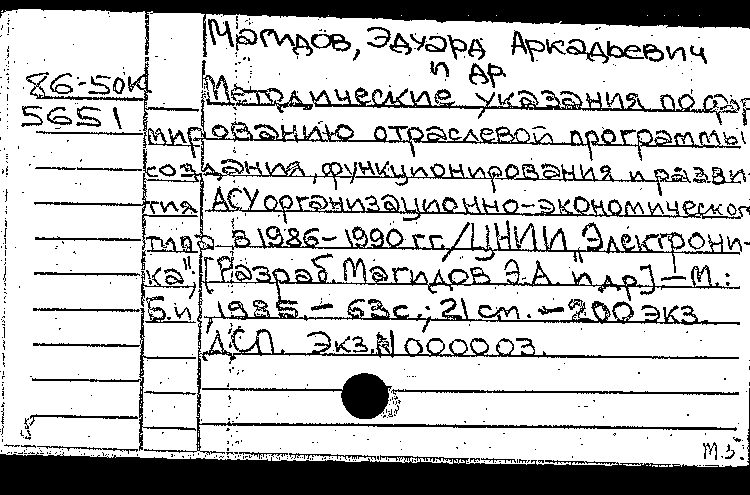 Магидов, Эдуард Аркадьевич
и др
86-50к
5651
Методические указания по фор
мированию отраслевой программы
создания, функционирования и разви-
тия АСУ организационно-экономического
типа в 1986-1990 гг./ЦНИИ "Электрони-
ка", [Разраб. Магидов Э.А. и др] - М.:
Б.и, 1985. - 63 с.; 21 см. - 200 экз.
ДСП. Экз. N 000003.
М.З.